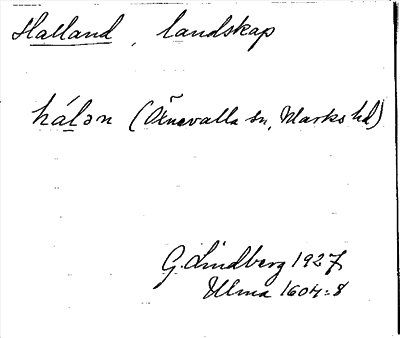 Halland, landskap
hálən (Örnevalla sn, Marks hd)
G. Lindberg 1927
Ulma 1604:8